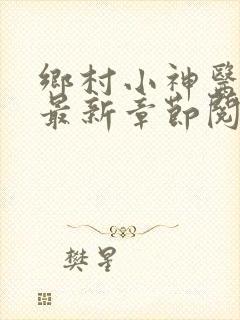 鄉村小神醫
最新章節閱
樊星